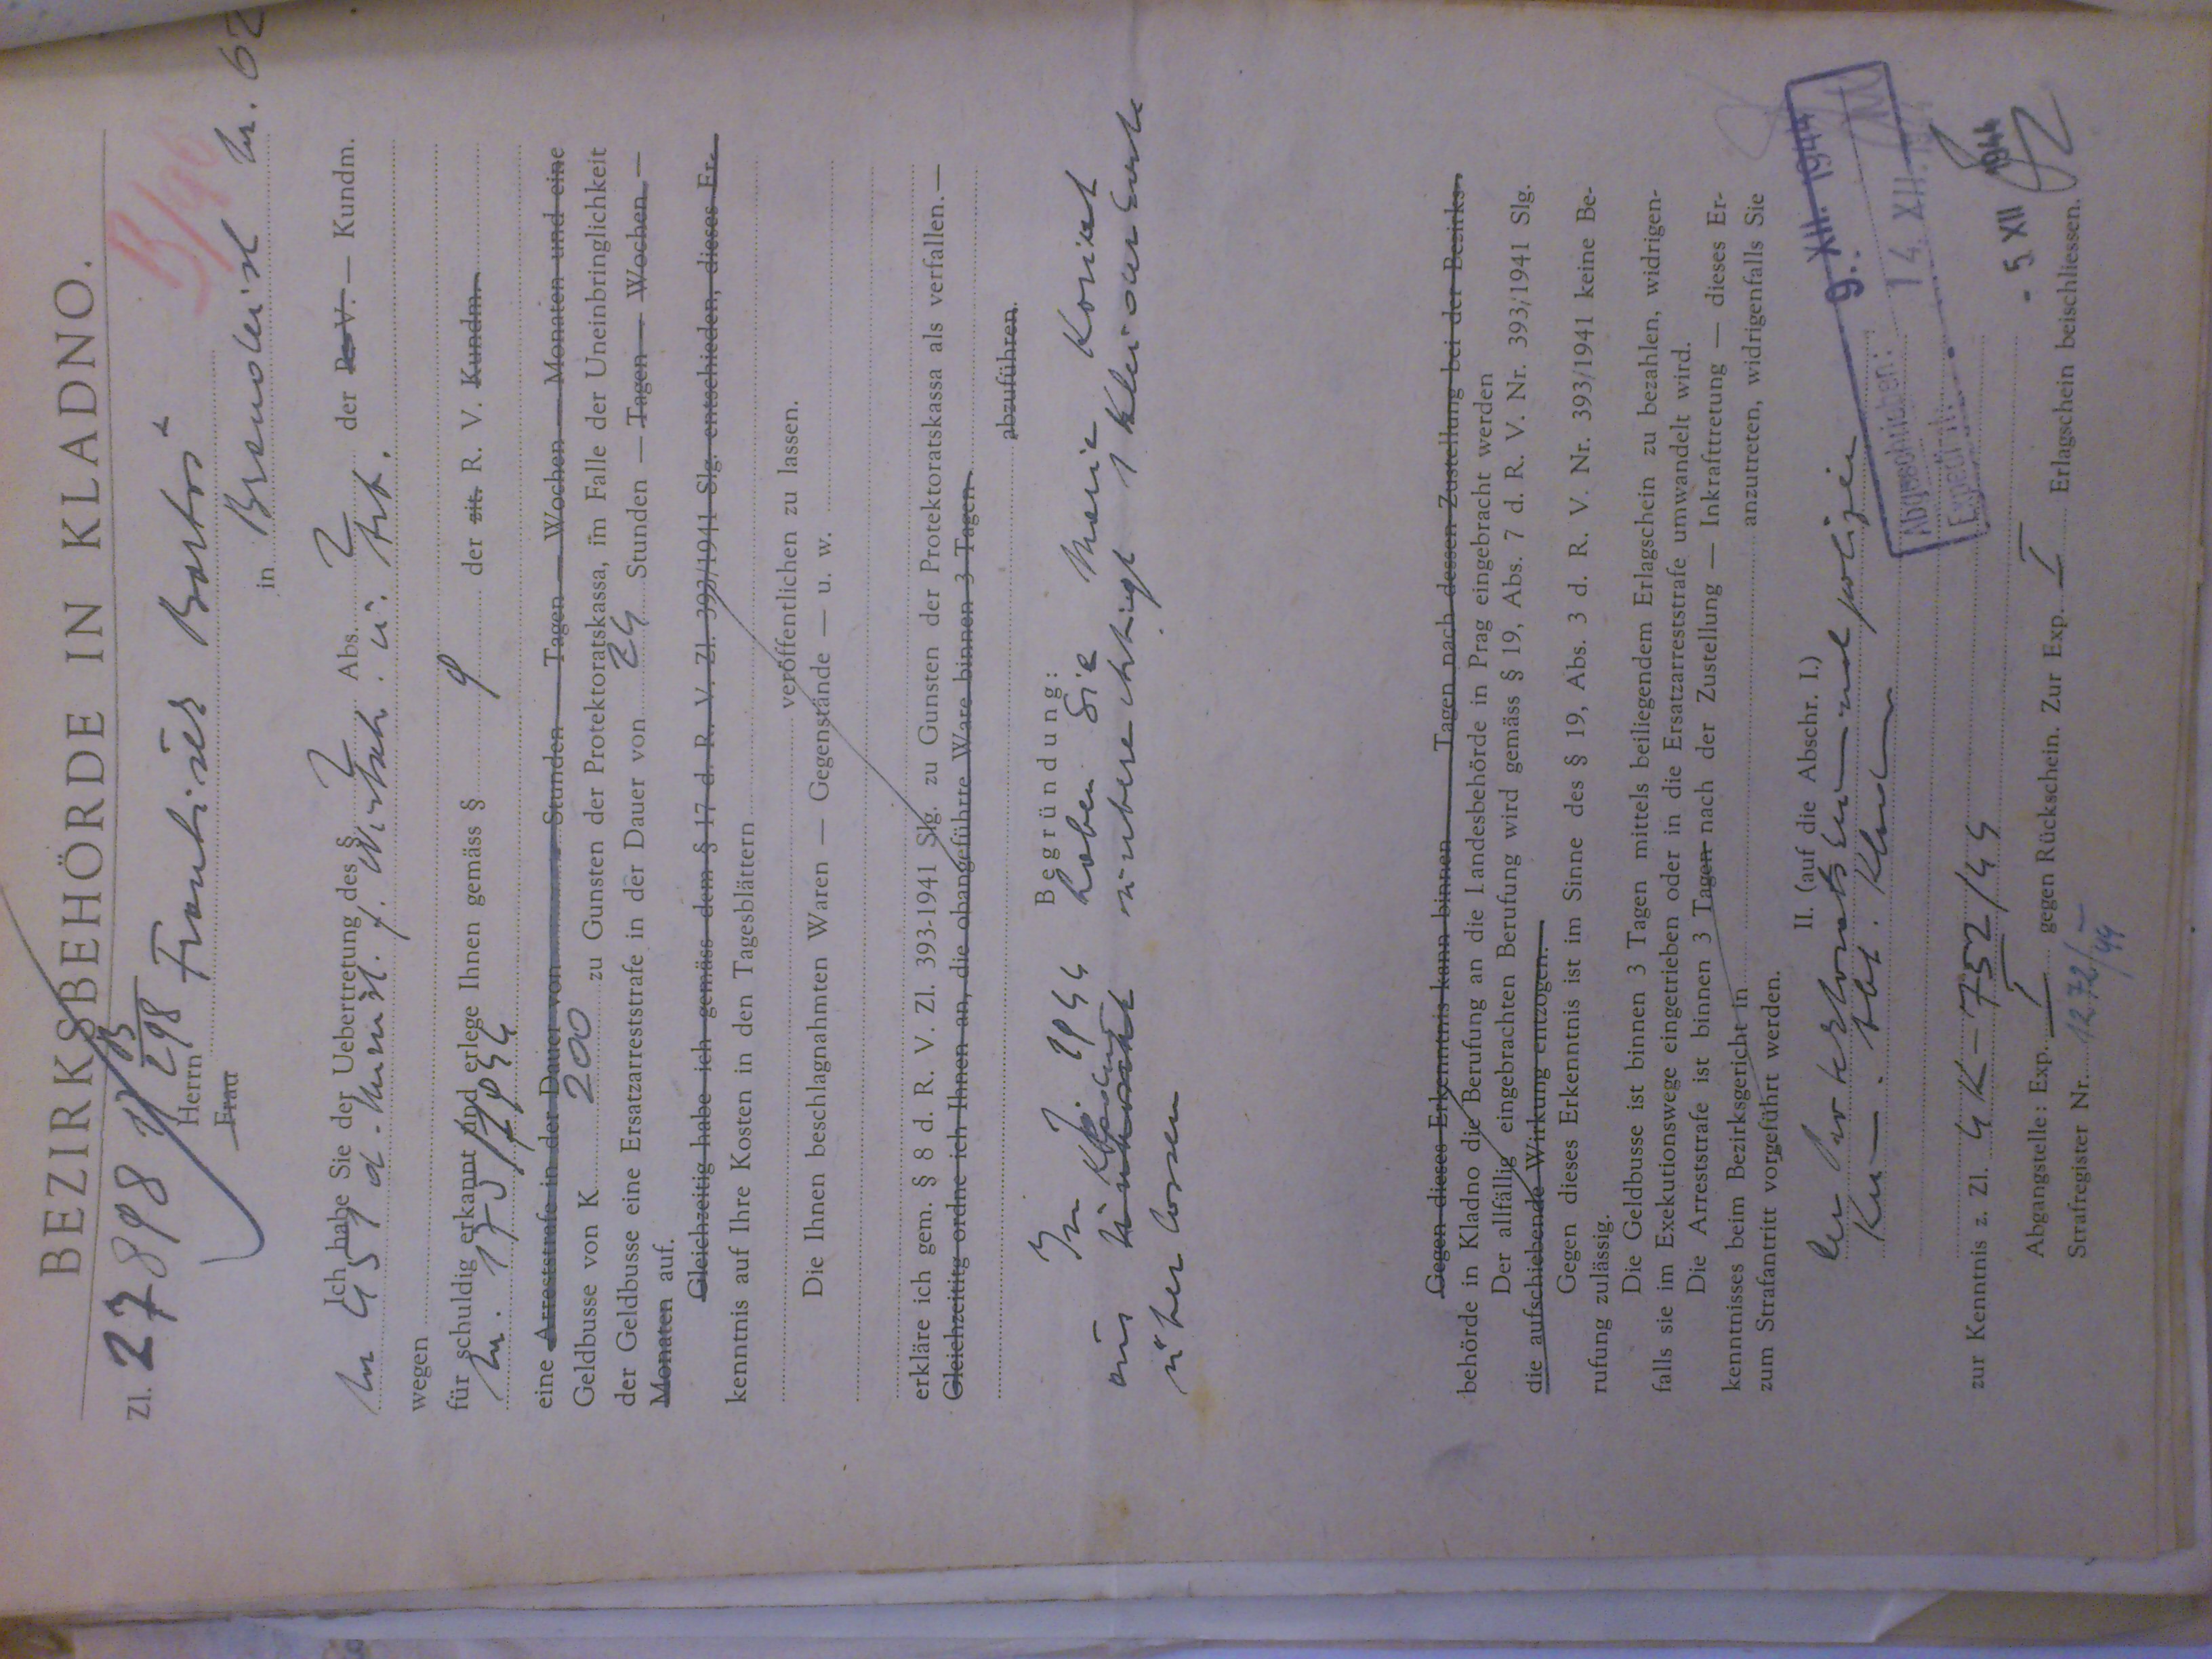 BEZIRKSBEHÖRDE IN KLADNO.
Zl. 27898 B/298
Herrn František Bartoš B/96
Frau
in Brandeisl Nr. 62
Ich habe Sie der Uebertretung des § 2 Abs. 2 der R. V. — Kundm.
Nr 451 d. Minist. f. Wirtsch. u. Arb.
wegen
für schuldig erkannt und erlege Ihnen gemäss § 9 der zit. R. V. Kundm.
Nr. 175/1944
eine Arreststrafe in der Dauer von Stunden — Tagen — Wochen — Monaten und eine
Geldbusse von K 200 zu Gunsten der Protektoratskassa, im Falle der Uneinbringlichkeit
der Geldbusse eine Ersatzarreststrafe in der Dauer von 24 Stunden — Tagen — Wochen —
Monaten auf.
Gleichzeitig habe ich gemäss dem § 17 d. R. V. Zl. 393/1941 Slg. entschieden, dieses Er-
kenntnis auf Ihre Kosten in den Tagesblättern
veröffentlichen zu lassen.
Die Ihnen beschlagnahmten Waren — Gegenstände — u. w.
erkläre ich gem. § 8 d. R. V. Zl. 393-1941 Slg. zu Gunsten der Protektoratskassa als verfallen.—
Gleichzeititg ordne ich Ihnen an, die obangeführte Ware binnen 3 Tagen
abzuführen.
Begründung:
Im J. 1944 haben Sie Marie
aus Kladno unberechtigt 1 Kleiderkarte
überlassen
Gegen dieses Erkenntnis kann binnen Tagen nach dessen Zustellung bei der Bezirks-
behörde in Kladno die Berufung an die Landesbehörde in Prag eingebracht werden
Der allfällig eingebrachten Berufung wird gemäss § 19, Abs. 7 d. R. V. Nr. 393/1941 Slg.
die aufschiebende Wirkung entzogen.
Gegen dieses Erkenntnis ist im Sinne des § 19, Abs. 3 d. R. V. Nr. 393/1941 keine Be-
rufung zulässig.
Die Geldbusse ist binnen 3 Tagen mittels beiliegendem Erlagschein zu bezahlen, widrigen-
falls sie im Exekutionswege eingetrieben oder in die Ersatzarreststrafe umwandelt wird.
Die Arreststrafe ist binnen 3 Tagen nach der Zustellung — Inkrafttretung — dieses Er-
kenntnisses beim Bezirksgericht in anzutreten, widrigenfalls Sie
zum Strafantritt vorgeführt werden.
II. (auf die Abschr. I.)
Der Protektoratskriminalpolizei
Krim. Abt. Kladno
9. XII. 1944
Abgeschrieben:
14. XII. 1944
Expediert:
zur Kenntnis z. Zl. 4K-752/44
- 5. XII 1944
Abgangstelle: Exp. I gegen Rückschein. Zur Exp. I Erlagschein beischliessen.
Strafregister Nr. 1272/44